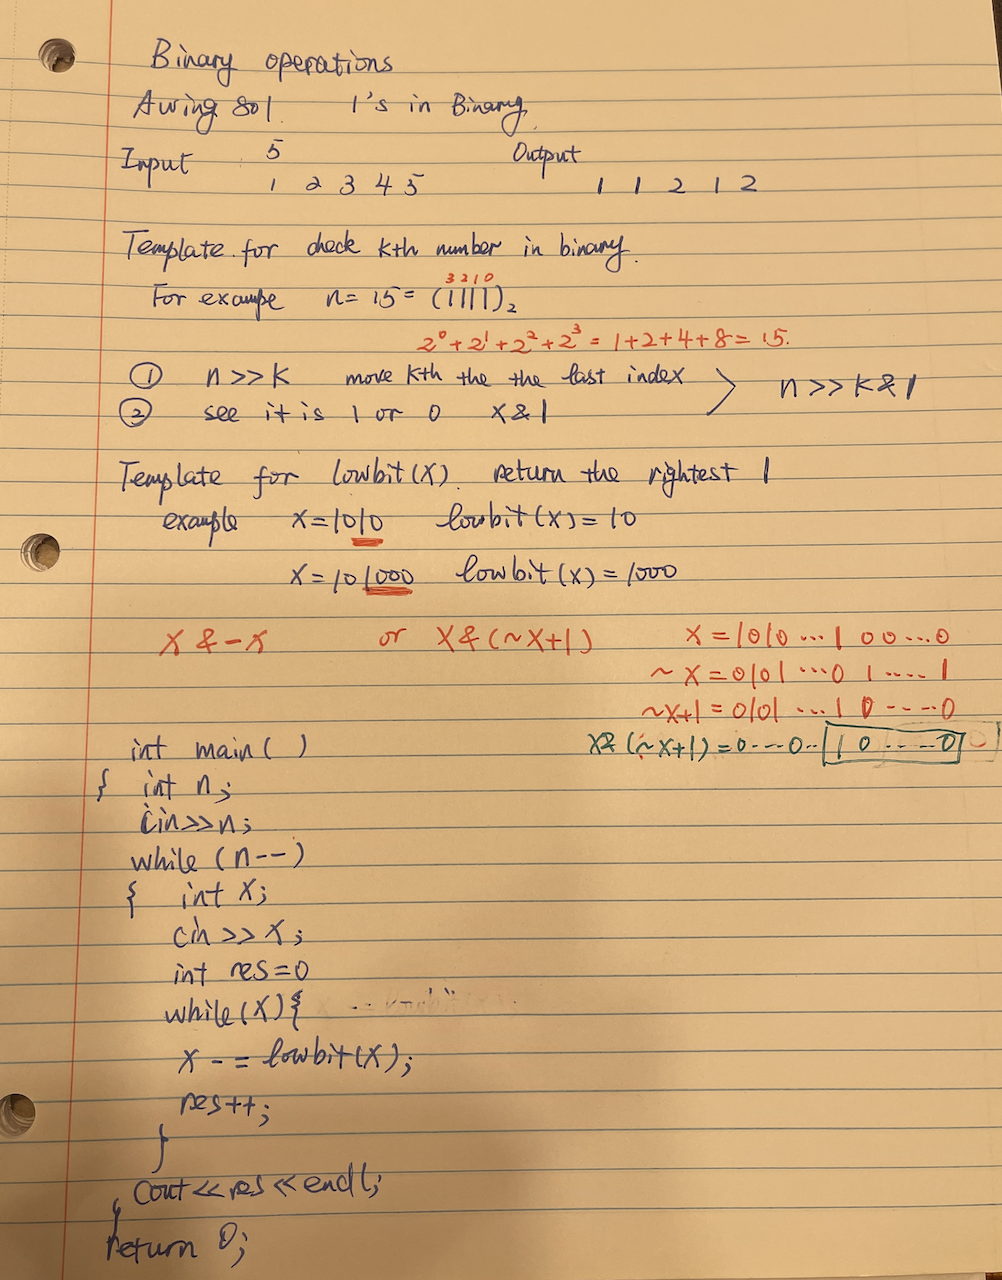 Binary operations
Awing 801 1's in Binary
Input 5 Output
1 2 3 4 5 1 1 2 1 2
Template for check kth number in binary.
3 2 1 0
For exampe n= 15 = (1111)₂
2⁰+2¹+2²+2³ = 1+2+4+8= 15.
① n>>k move kth the the last index
② see it is 1 or 0 x&1 > n>>k&1
Template for lowbit(x). return the rightest 1
example x=1010 lowbit(x)=10
x=101000 lowbit(x)=1000
x&-x or x&(~x+1) x=1010...100...0
~x=0101...01....1
~x+1=0101...10----0
x&(~x+1)=0---0--10----0
int main( )
{ int n;
cin>>n;
while(n--)
{ int x;
cin>>x;
int res=0
while(x){
x-=lowbit(x);
res++;
}
cout<<res<<endl;
}
return 0;